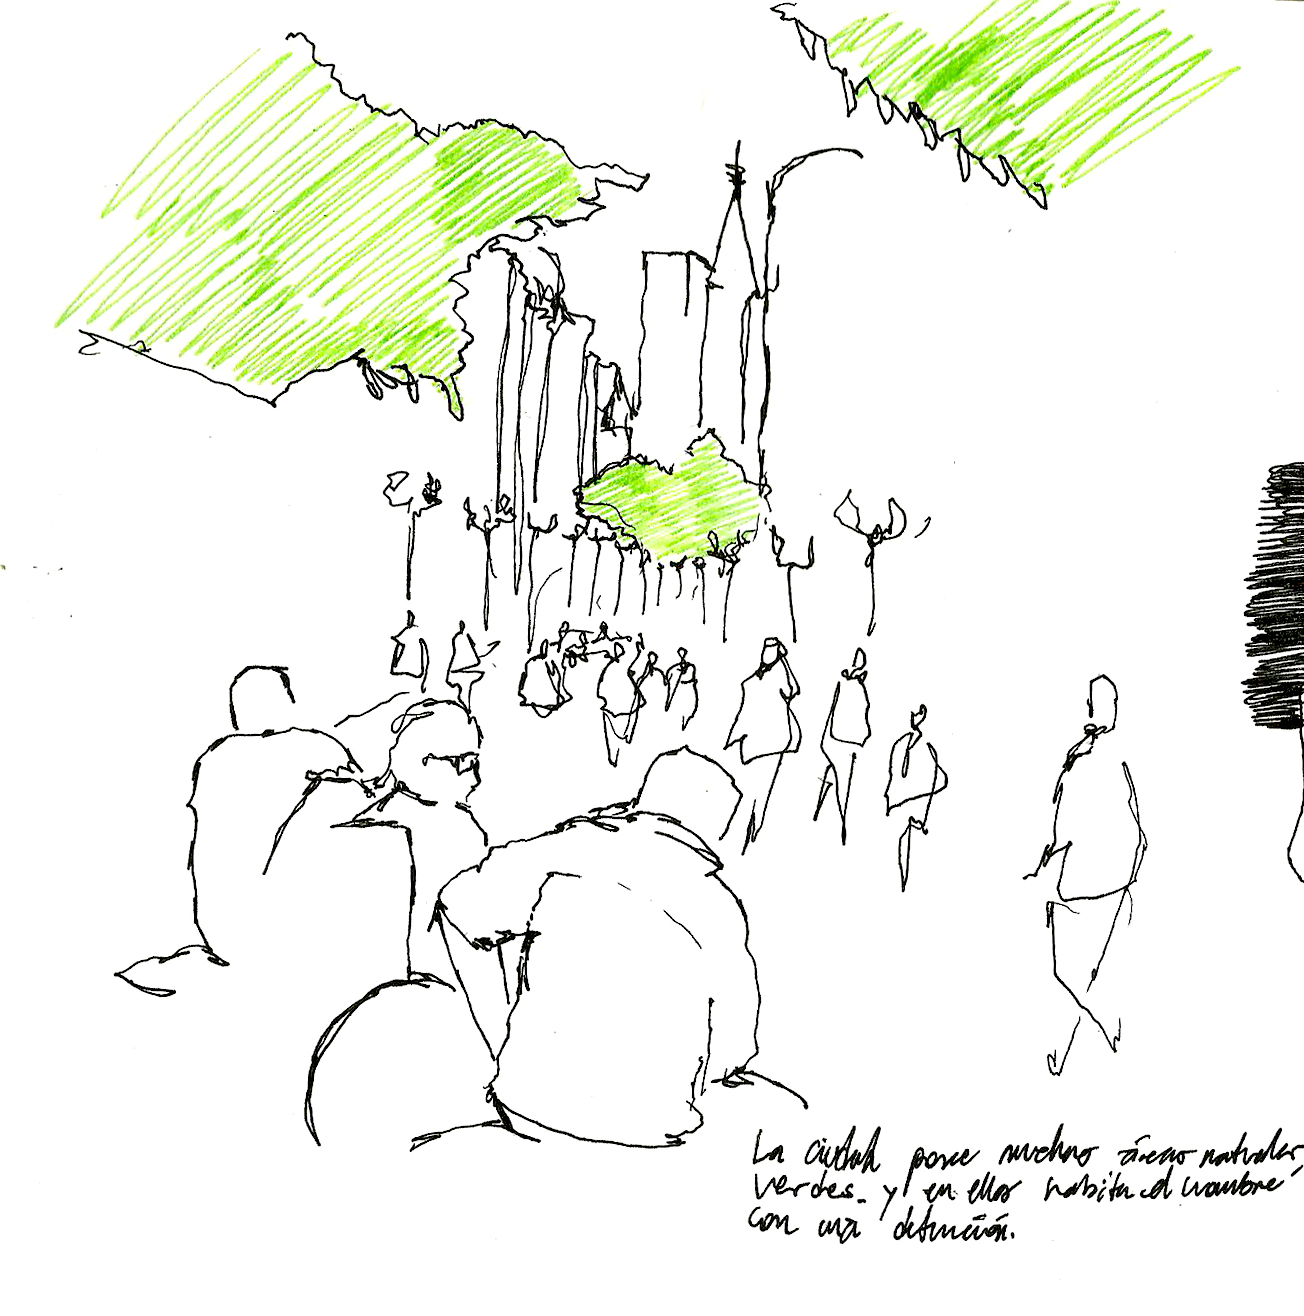 La ciudad posee muchas áreas naturales,
verdes. y en ellas habita el hombre
con una detención.